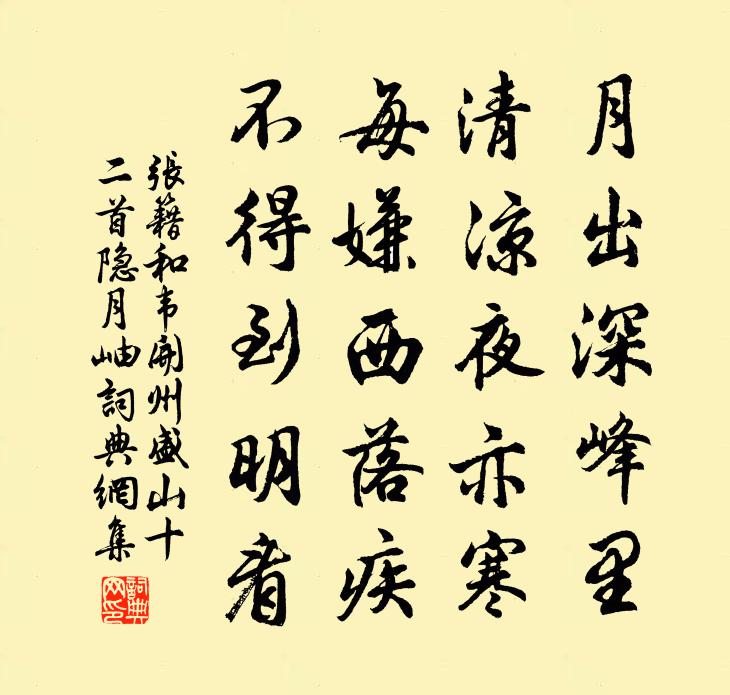 月出深峰里
清凉夜亦寒
每嫌西落疾
不得到明看
張籍和韦開州盛山十
二首隐月岫詞典網集
詞典
网印